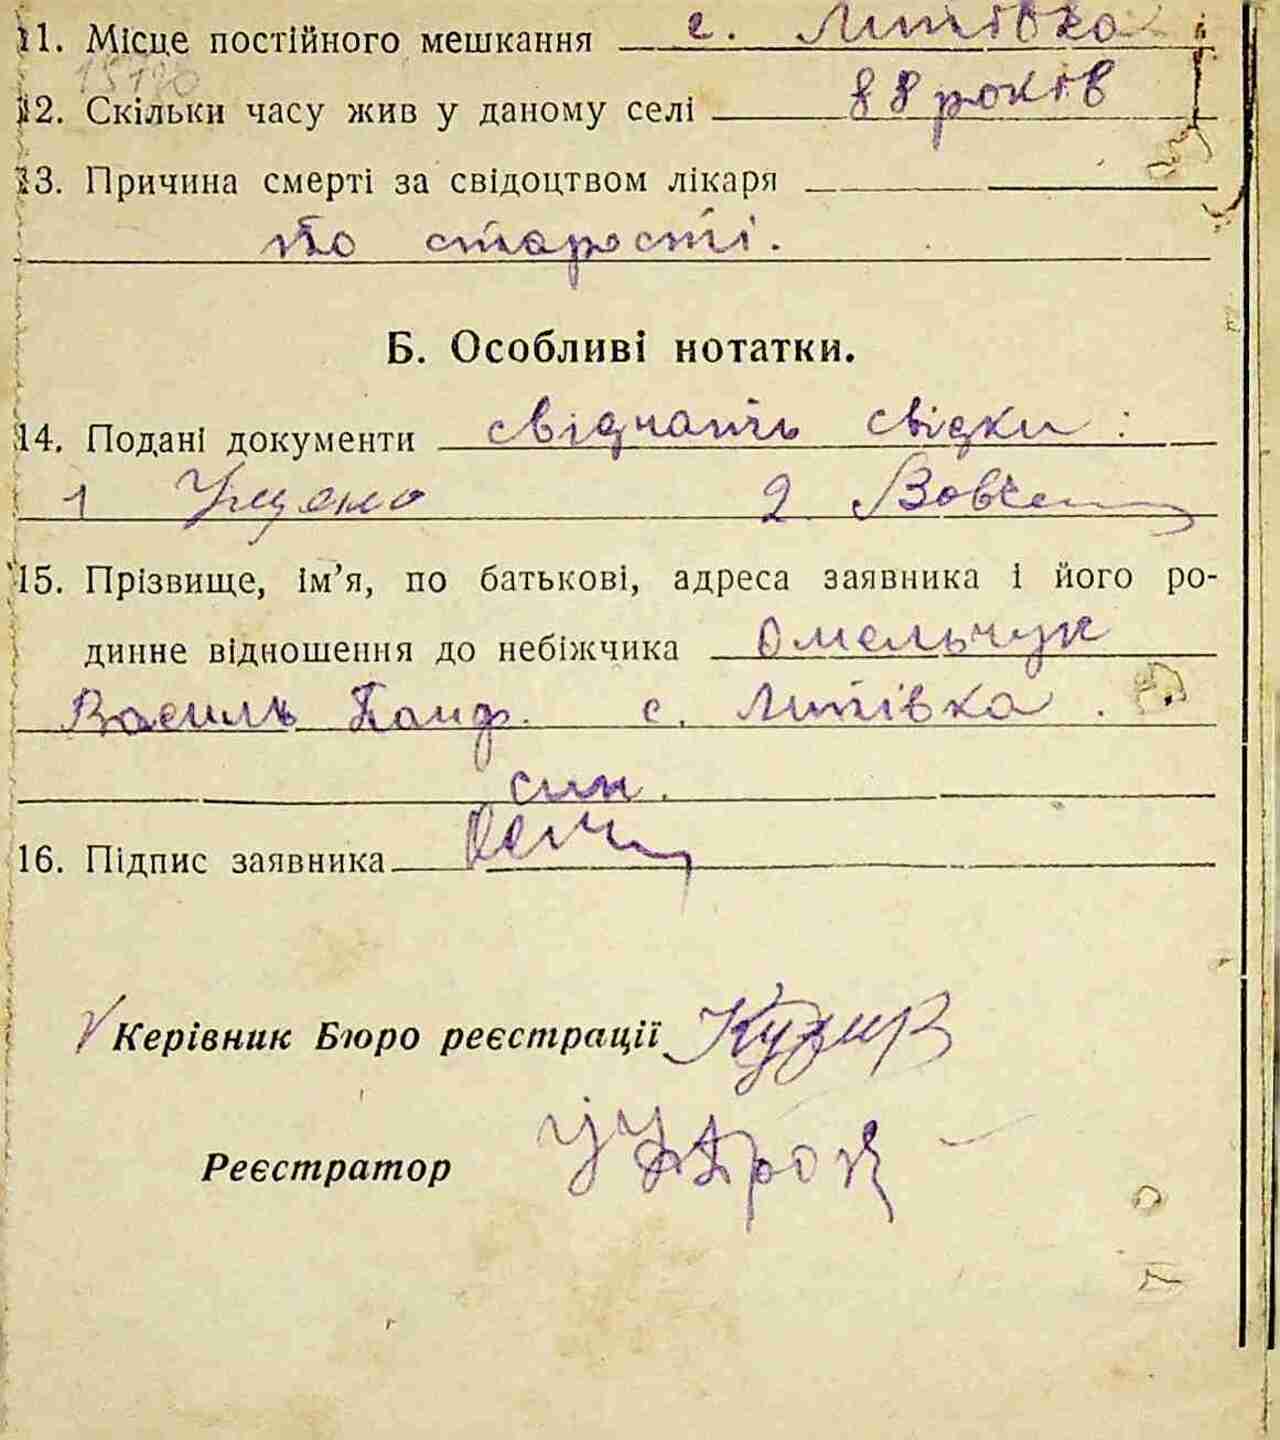 11. Місце постійного мешкання с. Литвівка
12. Скільки часу жив у даному селі 88 років
13. Причина смерті за свідоцтвом лікаря
по старості.
Б. Особливі нотатки.
14. Подані документи свідчать свідки:
1 2. Вовк
15. Прізвище, ім’я, по батькові, адреса заявника і його ро-
динне відношення до небіжчика Омельчук
Василь Панф. с. Литвівка.
син.
16. Підпис заявника
Керівник Бюро реєстрації
Реєстратор